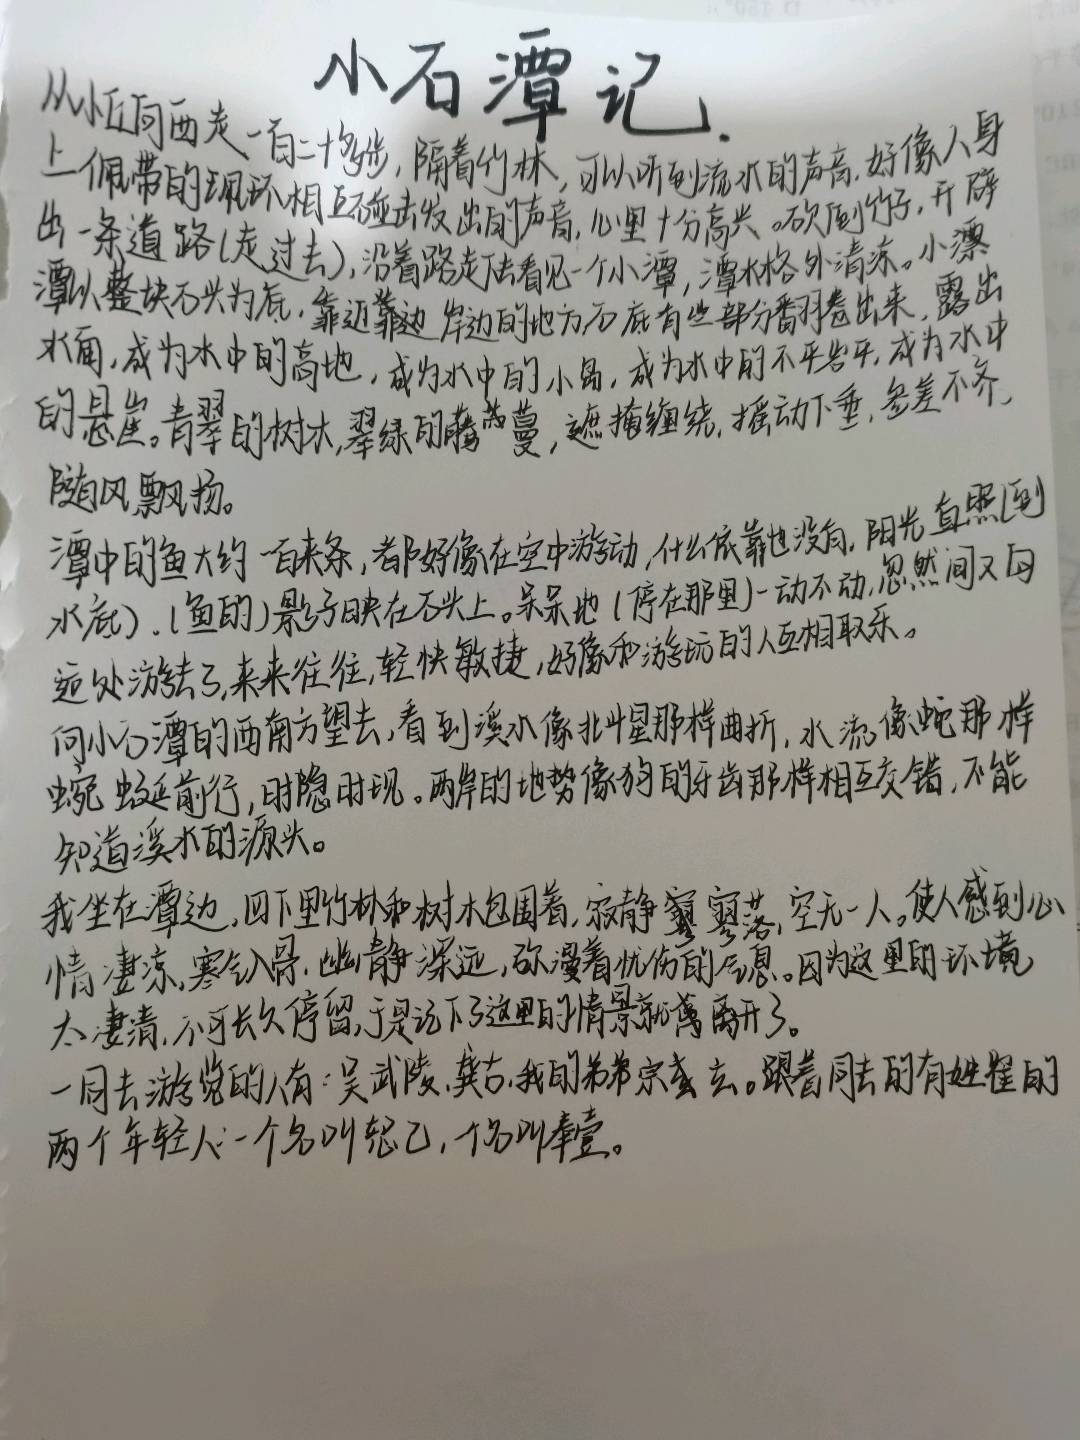 小石潭记.
从小丘向西走一百二十多步,隔着竹林,可以听到流水的声音,好像人身
上佩带的珮环相互碰击发出的声音,心里十分高兴。砍倒竹子,开辟
出一条道路(走过去),沿着路走下去看见一个小潭,潭水格外清冻。小潭
潭以整块石头为底,靠近靠边岸边的地方,石底有些部分翻卷出来,露出
水面,成为水中的高地,成为水中的小岛,成为水中的不平岩平,成为水中
的悬崖。青翠的树木,翠绿的藤蔓,遮掩缠绕,摇动下垂,参差不齐,
随风飘扬。
潭中的鱼大约一百来条,都好像在空中游动,什么依靠也没有,阳光直照(到
水底),(鱼的)影子映在石头上。呆呆地(停在那里)一动不动,忽然间又向
远处游去了,来来往往,轻快敏捷,好像和游玩的人互相取乐。
向小石潭的西南方望去,看到溪水像北斗星那样曲折,水流像蛇那样
蜿蜒前行,时隐时现。两岸的地势像狗的牙齿那样相互交错,不能
知道溪水的源头。
我坐在潭边,四下里竹林和树木包围着,寂静寥落,空无一人。使人感到心
情凄凉,寒气入骨,幽静深远,弥漫着忧伤的气息。因为这里的环境
太凄清,不可长久停留,于是记下了这里的情景就离开了。
一同去游览的人有:吴武陵,龚古,我的弟弟宗玄。跟着同去的有姓崔的
两个年轻人:一个名叫恕己,个名叫奉壹。